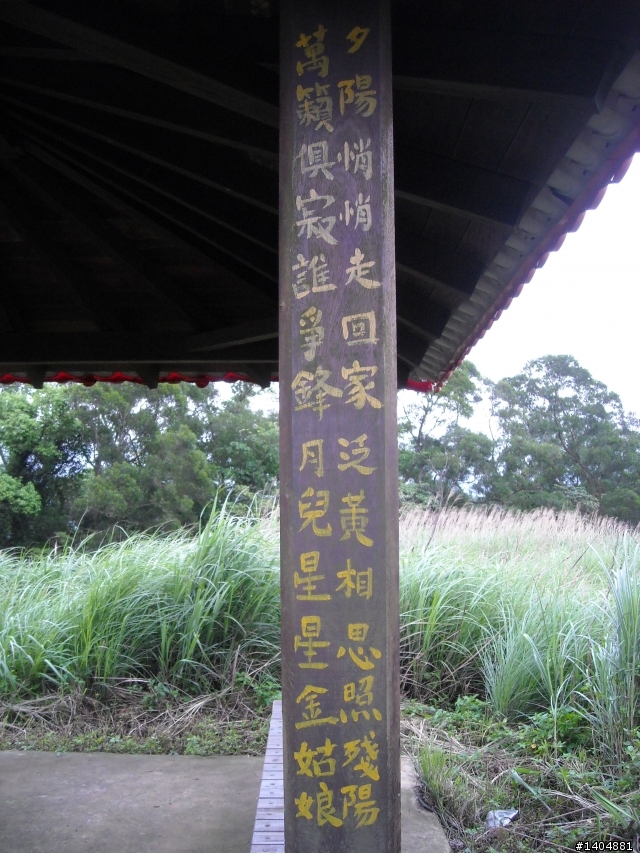 夕陽悄悄走回家泛黃相思照殘陽
萬籟俱寂誰爭鋒月兒星星金姑娘
#1404881